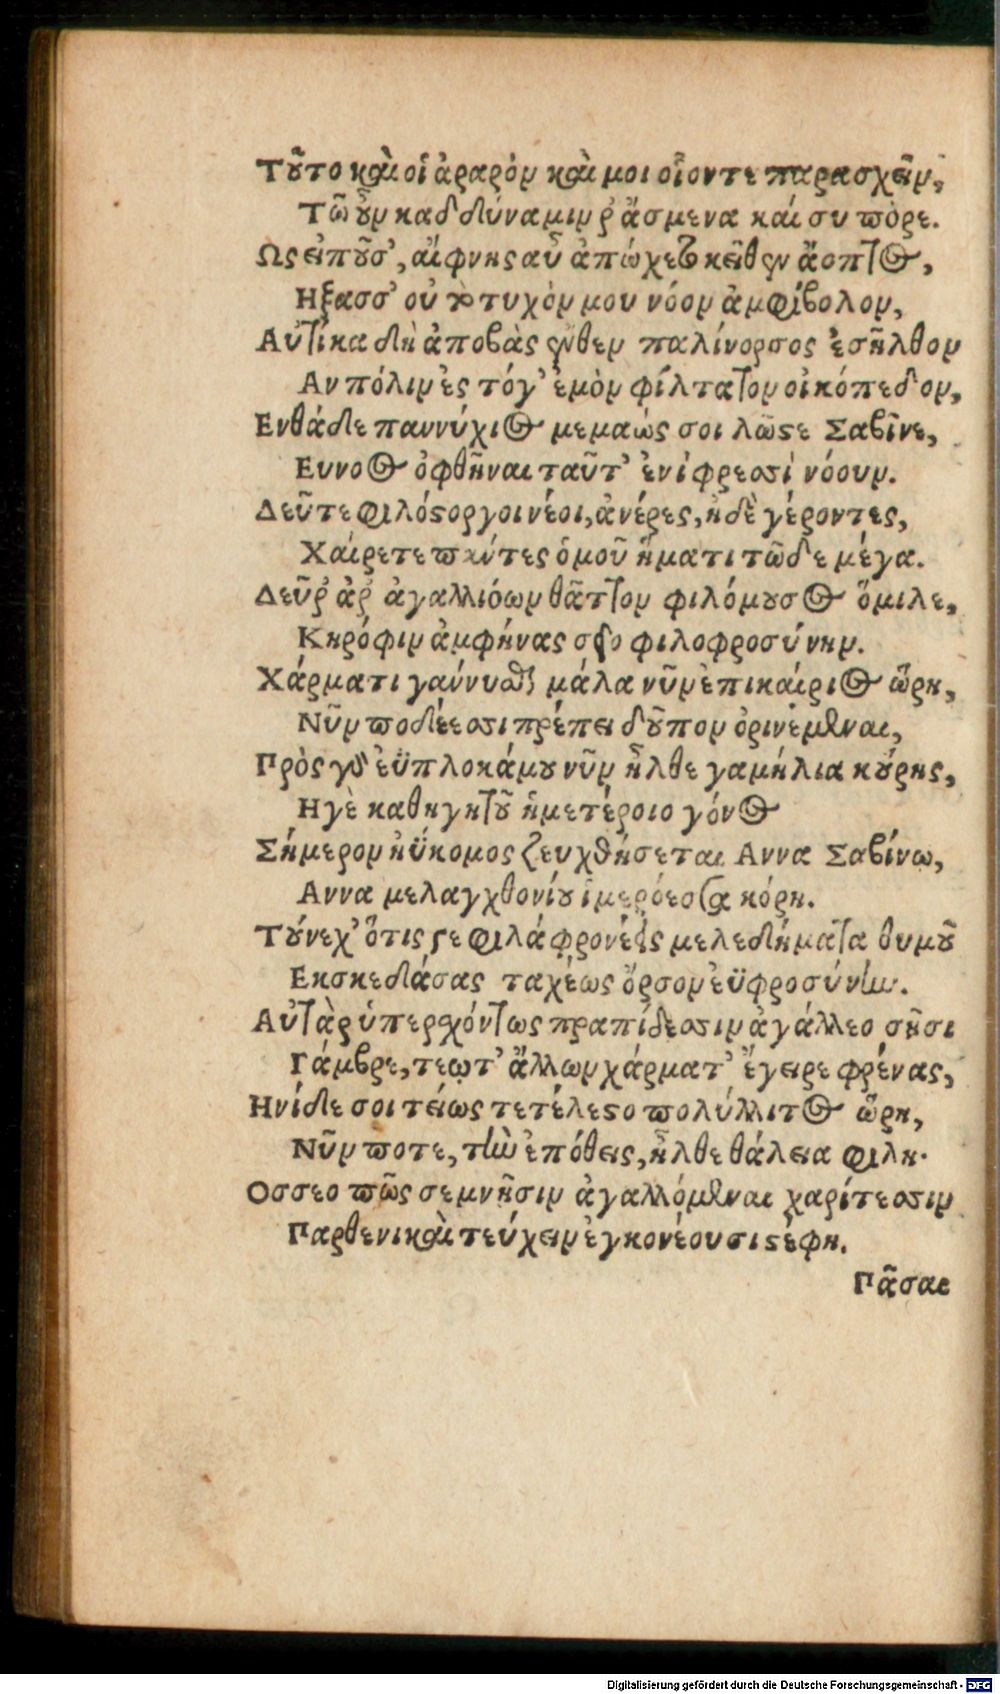 Τοῦτο καὶ οἱ ἀραρὸν καὶ μοι οἷον τε παρασχεῖν,
Τῶ οὖν καδδύναμιν ῥ' ἄσμενα καί συ πόρε.
Ως εἰποῦσ', αἴφνης αὖ ἀπώχετο κεῖθεν ἄοπτος,
Ηξασσ' οὐ τυχὸν μου νόον ἀμφίβολον,
Αὐτίκα δὴ ἀποβὰς ἔνθεν παλίνορσος ἐσῆλθον
Αν πόλιν ἐς τόγ' ἐμὸν φίλτατον οἰκόπεδον,
Ενθάδε παννύχιος μεμαώς σοι λῶστε Σαβῖνε,
Ευνος ὀφθῆναι ταῦτ' ἐνὶ φρεσὶ νόουν.
Δεῦτε φιλόστοργοι νέοι, ἀνέρες, ἠδὲ γέροντες,
Χαίρετε πάντες ὁμοῦ ἤματι τῶδε μέγα.
Δεῦρ' ἀρ' ἀγαλλιόων θᾶττον φιλόμουσος ὅμιλε,
Κηρόφιν ἀμφήνας σεο φιλοφροσύνην.
Χάρματι γάννυσθαι μάλα νῦν ἐπικαίριος ὥρη,
Νῦν ποδέεσσι πρέπει δοῦπον ὀρινέμεναι,
Πρὸς γὰρ ἐϋπλοκάμου νῦν ἦλθε γαμήλια κούρης,
Ηγὲ καθηγητοῦ ἡμετέροιο γόνος
Σήμερον ἠΰκομος ζευχθήσεται Αννα Σαβίνω,
Αννα μελαγχθονίου ἱμερόεσσα κόρη.
Τούνεχ' ὅτις γε φιλά φρονέεις μελεδήματα θυμοῦ
Εκσκεδάσας ταχέως ὄρσον ἐϋφροσύνην.
Αὐτὰρ ὑπερχόντως πραπίδεσσιν ἀγάλλεο σῆσι
Γάμβρε, τεῳτ' ἄλλων χάρματ' ἔγειρε φρένας,
Ηνίδε σοι τείως τετέλεστο πολύλλιτος ὥρη,
Νῦν ποτε, τὴν ἐπόθεις, ἦλθε θάλεια φίλη.
Οσσεο πῶς σεμνῇσιν ἀγαλλόμεναι χαρίτεσσιν
Παρθενικαὶ τεύχειν ἐγκονέουσι στέφη.
Πᾶσαι
Digitalisierung gefördert durch die Deutsche Forschungsgemeinschaft - DFG